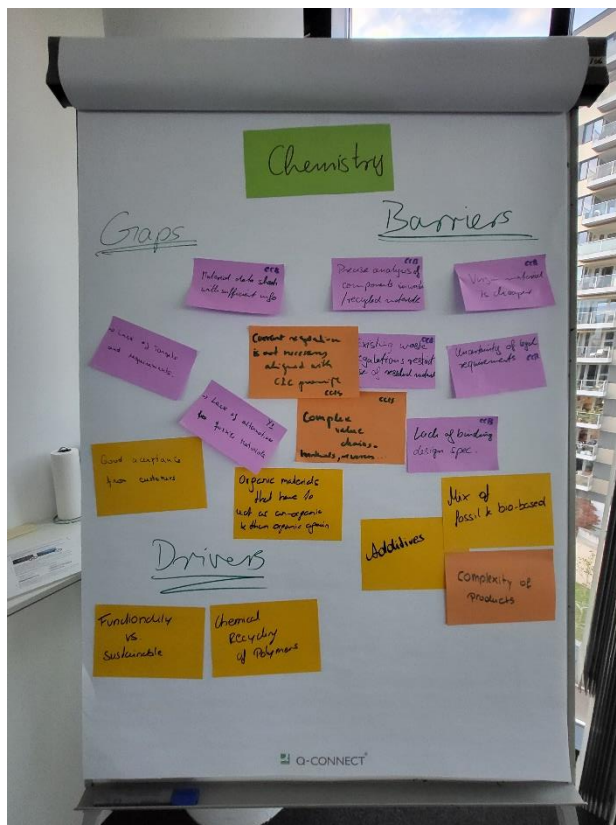 Chemistry
Gaps
Barriers
CCB
Material data sheets
with sufficient info
CCB
Precise analysis of
components in waste
/recycled materials
CCB
material
is cheaper
Lack of
and requirements
Current regulation
is not necessary
aligned with
CCB
Existing waste
regulations restrict
use of recycled
Uncertainty of legal
requirements
CCB
Lack of alternatives
to fossil materials
CCB
Complex
value
chains
CCB
Lack of binding
design spec.
Good acceptance
from customers
Organic materials
that have to
act as an-organic
& then organic again
Additives
Mix of
fossil & bio-based
Complexity of
products
Drivers
Functionality
vs.
Sustainable
Chemical
Recycling
of Polymers
Q-CONNECT